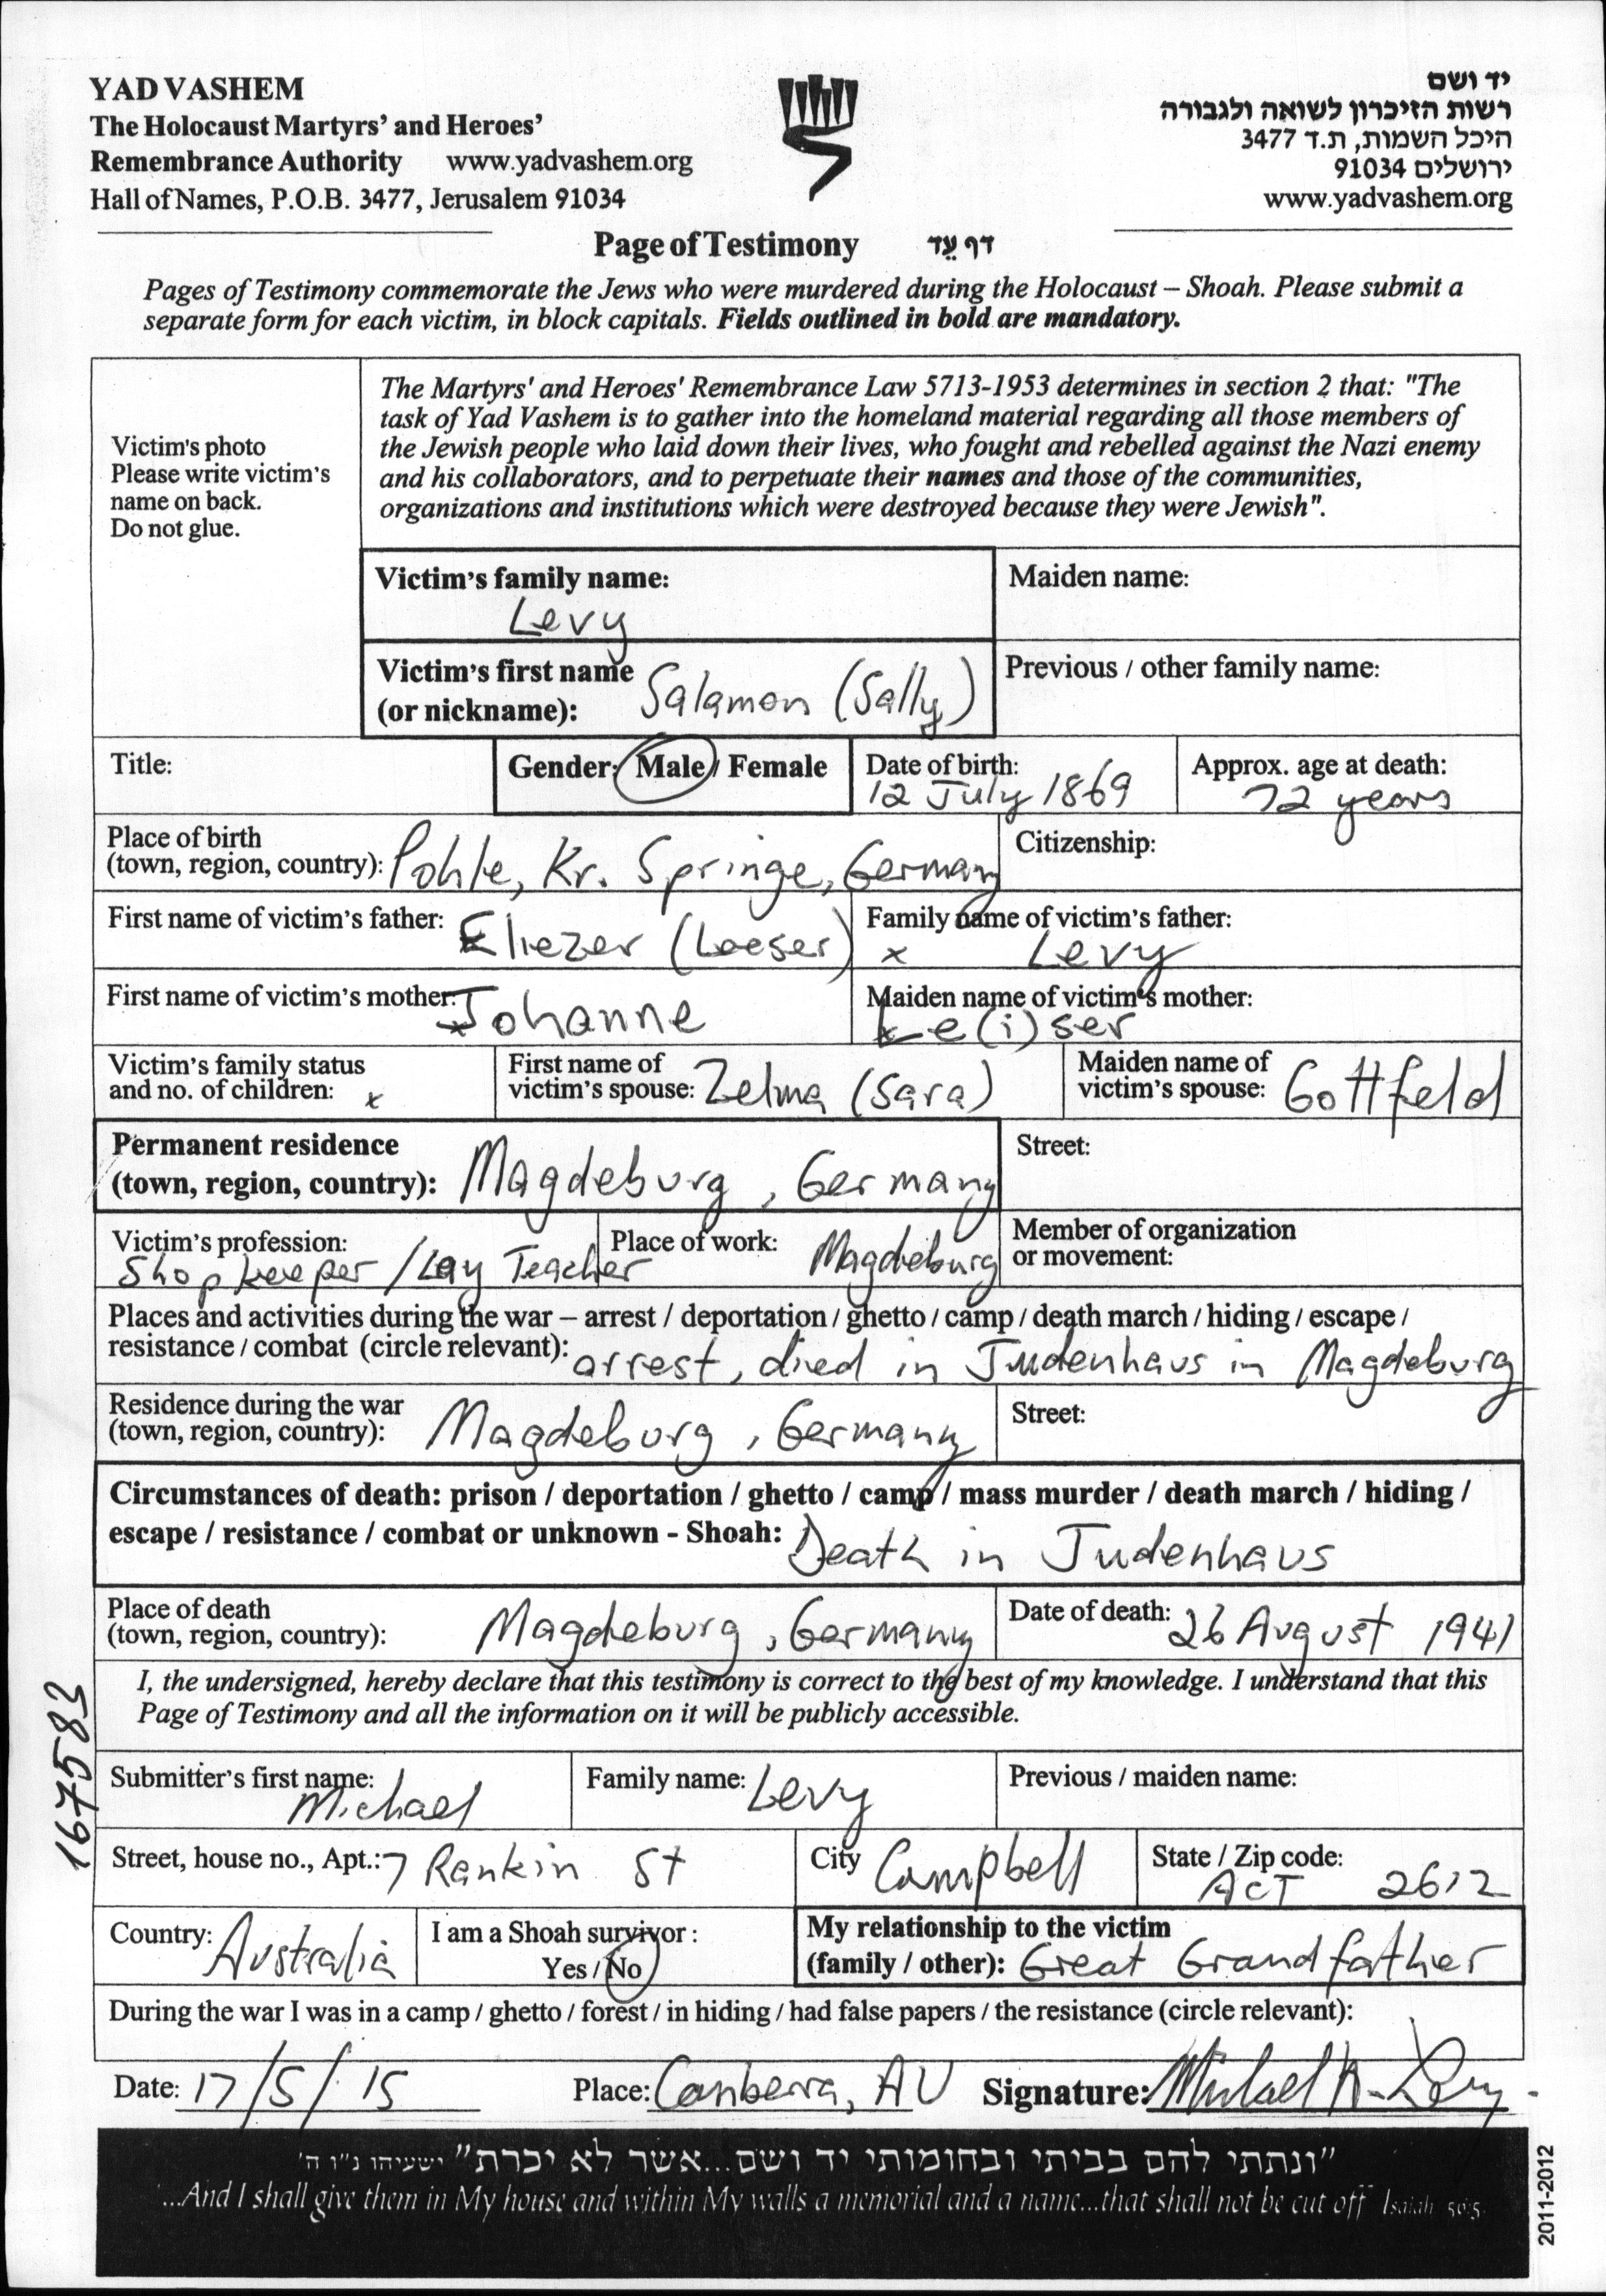 YAD VASHEM
The Holocaust Martyrs' and Heroes'
Remembrance Authority www.yadvashem.org
Hall of Names, P.O.B. 3477, Jerusalem 91034
יד ושם
רשות הזיכרון לשואה ולגבורה
היכל השמות, ת.ד 3477
ירושלים 91034
www.yadvashem.org
Page of Testimony דף עֵד
Pages of Testimony commemorate the Jews who were murdered during the Holocaust – Shoah. Please submit a
separate form for each victim, in block capitals. Fields outlined in bold are mandatory.
Victim's photo
Please write victim's
name on back.
Do not glue.
The Martyrs' and Heroes' Remembrance Law 5713-1953 determines in section 2 that: "The
task of Yad Vashem is to gather into the homeland material regarding all those members of
the Jewish people who laid down their lives, who fought and rebelled against the Nazi enemy
and his collaborators, and to perpetuate their names and those of the communities,
organizations and institutions which were destroyed because they were Jewish".
Victim's family name:
Levy
Maiden name:
Victim's first name
(or nickname): Salamon (Sally)
Previous / other family name:
Title:
Gender: Male / Female
Date of birth:
12 July 1869
Approx. age at death:
72 years
Place of birth
(town, region, country): Pohle, Kr. Springe, Germany
Citizenship:
First name of victim's father: Eliezer (Leeser)
Family name of victim's father:
x Levy
First name of victim's mother: Johanne
Maiden name of victim's mother:
Le(i)ser
Victim's family status
and no. of children: x
First name of
victim's spouse: Zelma (Sara)
Maiden name of
victim's spouse: Gottfeld
Permanent residence
(town, region, country): Magdeburg, Germany
Street:
Victim's profession:
Shopkeeper / Lay Teacher
Place of work: Magdeburg
Member of organization
or movement:
Places and activities during the war – arrest / deportation / ghetto / camp / death march / hiding / escape /
resistance / combat (circle relevant): arrest, died in Judenhaus in Magdeburg
Residence during the war
(town, region, country): Magdeburg, Germany
Street:
Circumstances of death: prison / deportation / ghetto / camp / mass murder / death march / hiding /
escape / resistance / combat or unknown - Shoah: Death in Judenhaus
Place of death
(town, region, country): Magdeburg, Germany
Date of death: 26 August 1941
I, the undersigned, hereby declare that this testimony is correct to the best of my knowledge. I understand that this
Page of Testimony and all the information on it will be publicly accessible.
167583
Submitter's first name:
Michael
Family name: Levy
Previous / maiden name:
Street, house no., Apt.: 7 Rankin St
City Campbell
State / Zip code:
ACT 2612
Country: Australia
I am a Shoah survivor :
Yes / No
My relationship to the victim
(family / other): Great Grandfather
During the war I was in a camp / ghetto / forest / in hiding / had false papers / the resistance (circle relevant):
Date: 17/5/15
Place: Canberra, AU
Signature: Michael A. Levy
"ונתתי להם בביתי ובחומותי יד ושם...אשר לא יכרת" ישעיהו נ"ו ה'
...And I shall give them in My house and within My walls a memorial and a name...that shall not be cut off Isaiah 56:5
2011-2012